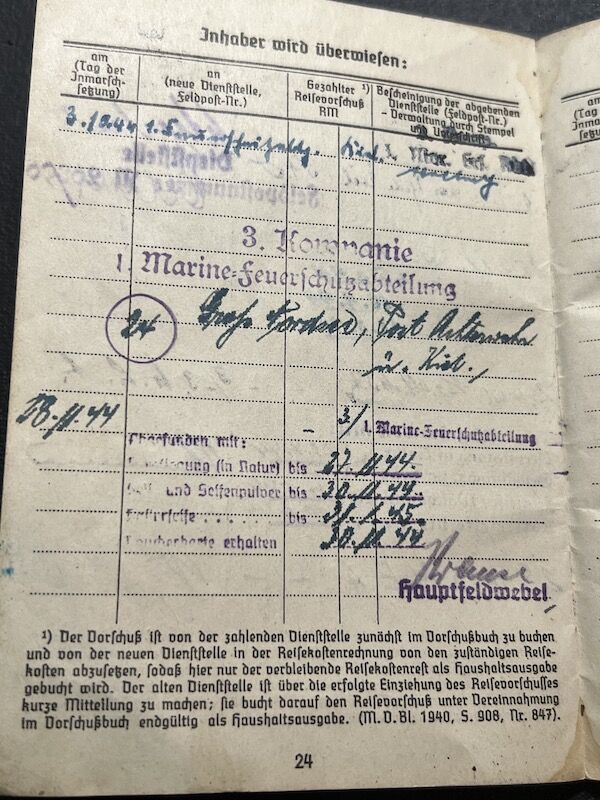 Inhaber wird überwiesen:
am
(Tag der
Inmarsch-
setzung)
an
(neue Dienststelle,
Feldpost-Nr.)
Gezahlter ¹)
Reisevorschuß
RM
Bescheinigung der abgebenden
Dienststelle (Feldpost-Nr.)
- Verwaltung durch Stempel
und Unterschrift
Kiel.
Dienststelle
3. Kompanie
1. Marine-Feuerschutzabteilung
24
Post
ü. Kiel.,
28.11.44
- 3/ 1. Marine-Feuerschutzabteilung
Abgefunden mit:
(in Natur) bis 27.11.44.
und Seifenpulver bis 30.11.44.
bis 31.1.45.
erhalten 30.11.44
Hauptfeldwebel
¹) Der Vorschuß ist von der zahlenden Dienststelle zunächst im Vorschußbuch zu buchen
und von der neuen Dienststelle in der Reisekostenrechnung von den zuständigen Reise-
kosten abzusetzen, sodaß hier nur der verbleibende Reisekostenrest als Haushaltsausgabe
gebucht wird. Der alten Dienststelle ist über die erfolgte Einziehung des Reisevorschusses
kurze Mitteilung zu machen; sie bucht darauf den Reisevorschuß unter Vereinnahmung
im Vorschußbuch endgültig als Haushaltsausgabe. (M. D. Bl. 1940, S. 908, Nr. 847).
24
am
(Tag
Inma
setzu